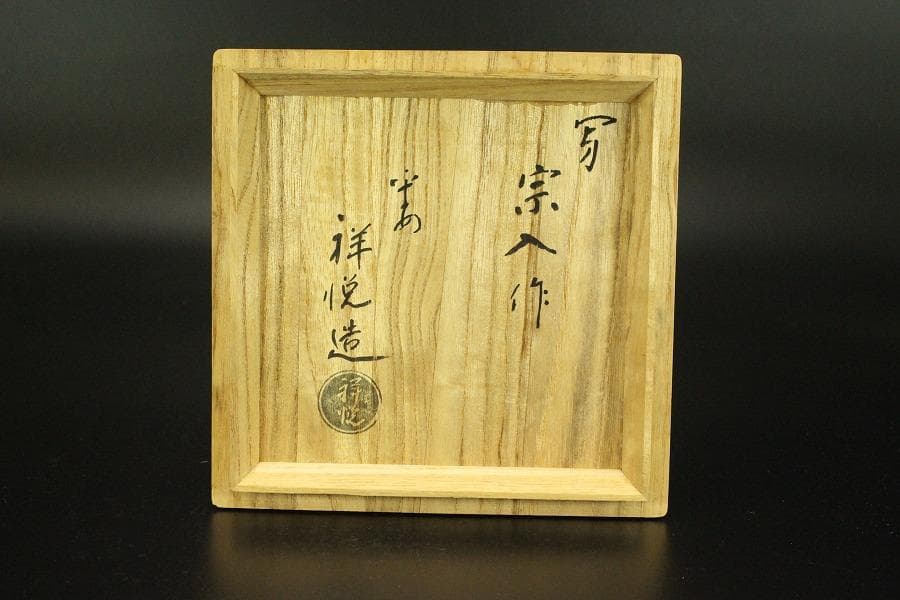 写
宗入作
祥悦造
祥悦